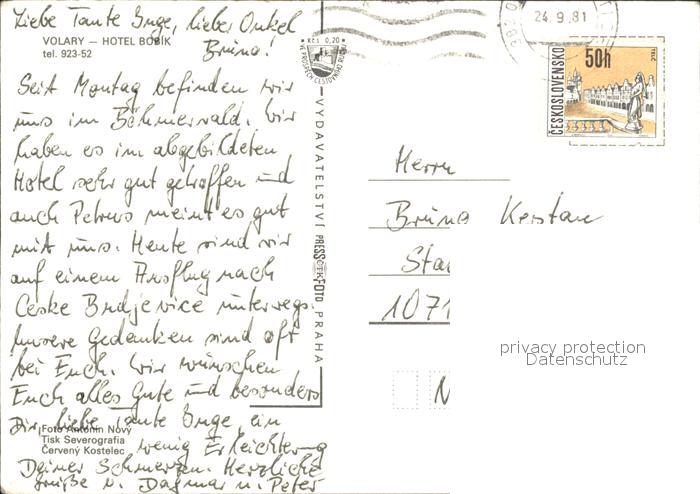 Liebe Tante Inge, lieber Onkel
Bruno!
VOLARY — HOTEL BOBÍK
tel. 923-52
Seit Montag befinden wir
uns im Böhmerwald. Wir
haben es im abgebildeten
Hotel sehr gut getroffen und
auch Petrus meint es gut
mit uns. Heute sind wir
auf einem Ausflug nach
Ceske Budjevice unterwegs.
Unsere Gedanken sind oft
bei Euch. Wir wünschen
Euch alles Gute und besonders
Dir, liebe Tante Inge, ein
wenig Erleichterung
Deiner Schmerzen. Herzliche
Grüße v. Dagmar u. Peter
Foto Antonín Nový
Tisk Severografia
Červený Kostelec
Kčs 0,20
VE PROSPĚCH CESTOVNÍHO RUCHU
VYDAVATELSTVÍ PRESSFOTO PRAHA
24.9.81
ČESKOSLOVENSKO
50h
TELČ
Herrn
Bruno Kerstan
Sta
1071
N
privacy protection
Datenschutz